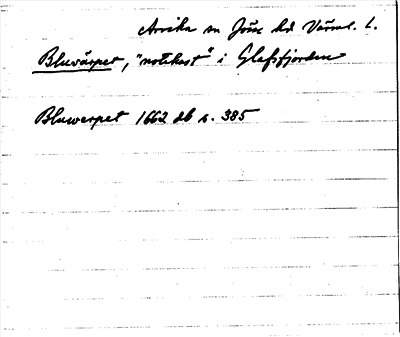 Arvika sn Jösse hd Värml. l.
Bluvärpet, "notekast" i Glafsfjorden
Bluwerpet 1662 db s. 385